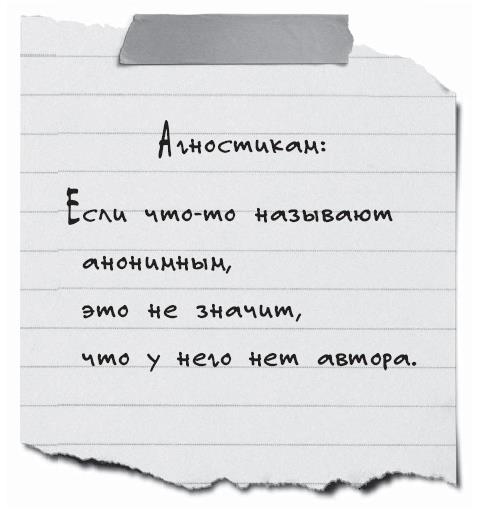 Агностикам:
Если что-то называют
анонимным,
это не значит,
что у него нет автора.